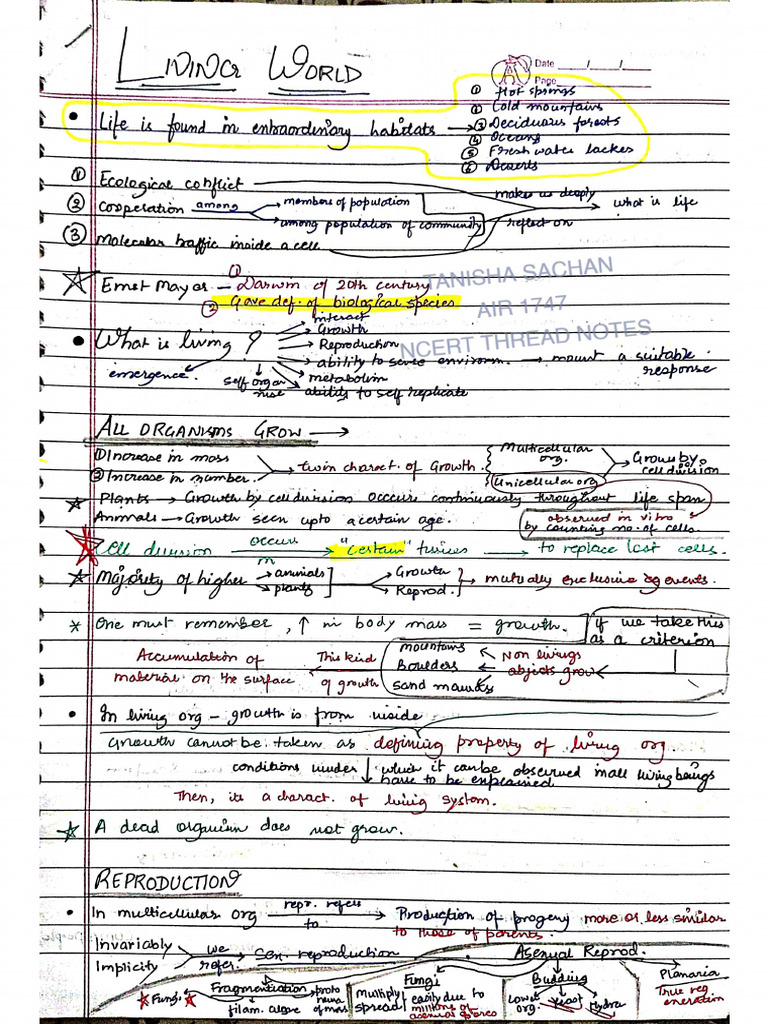 LIVING WORLD
Date ___/___/___
Page
• Life is found in extraordinary habitats → ① Hot springs
② Cold mountains
③ Deciduous forests
④ Oceans
⑤ Fresh water lackes
⑥ Deserts
① Ecological conflict
② Cooperation among members of population
among population of community
③ Molecular traffic inside a cell
makes us deeply reflect on → what is life
Ernst Mayar - ① Darwin of 20th century
② Gave def. of biological species
TANISHA SACHAN
AIR 1747
NCERT THREAD NOTES
• What is living ?
interact
Growth
Reproduction
ability to sense environ. → mount a suitable response
metabolism
ability to self replicate
self organise
emergence
ALL ORGANISMS GROW →
① Increase in mass
② Increase in number.
→ twin charact. of Growth.
Multicellular org.
Unicellular org
→ Grows by cell division
* Plants → Growth by cell division occurs continuously throughout life span
Animals → Growth seen upto a certain age.
observed in vitro by counting no. of cells
* Cell division occurs in → "certain" tissues → to replace lost cells.
* Majority of higher → animals → plants → Growth Reprod. → mutually exclusive events.
* One must remember, ↑ in body mass = growth.
if we take this as a criterion
Non livings objects grow
mountains
Boulders
sand mounds
This kind of growth
Accumulation of material on the surface
• In living org - growth is from inside
Growth cannot be taken as defining property of living org.
conditions under which it can be observed in all living beings have to be explained
Then, its a charact. of living system.
* A dead organism does not grow.
REPRODUCTION
• In multicellular org repr. refers to → Production of progeny more or less similar to those of parents.
Invariably
Implicity
we refer.
Sex. reproduction
Asexual Reprod.
Fragmentation
* Fungi *
filam. algae
protonema of mos
Fungi
multiply spread easily due to millions of asexual spores
Budding
lower org.
yeast
Hydra
Planaria
True regeneration